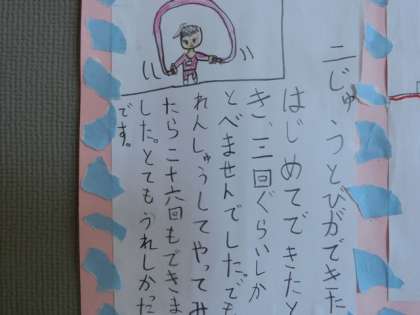 二じゅうとびができた
はじめてできたと
き、三回ぐらいしか
とべませんでした。でも
れんしゅうしてやってみ
たら二十六回もできま
した。とてもうれしかった
です。